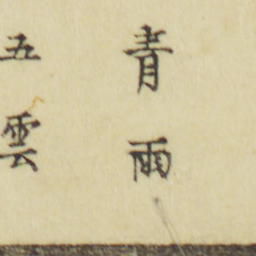 青雨
五雲